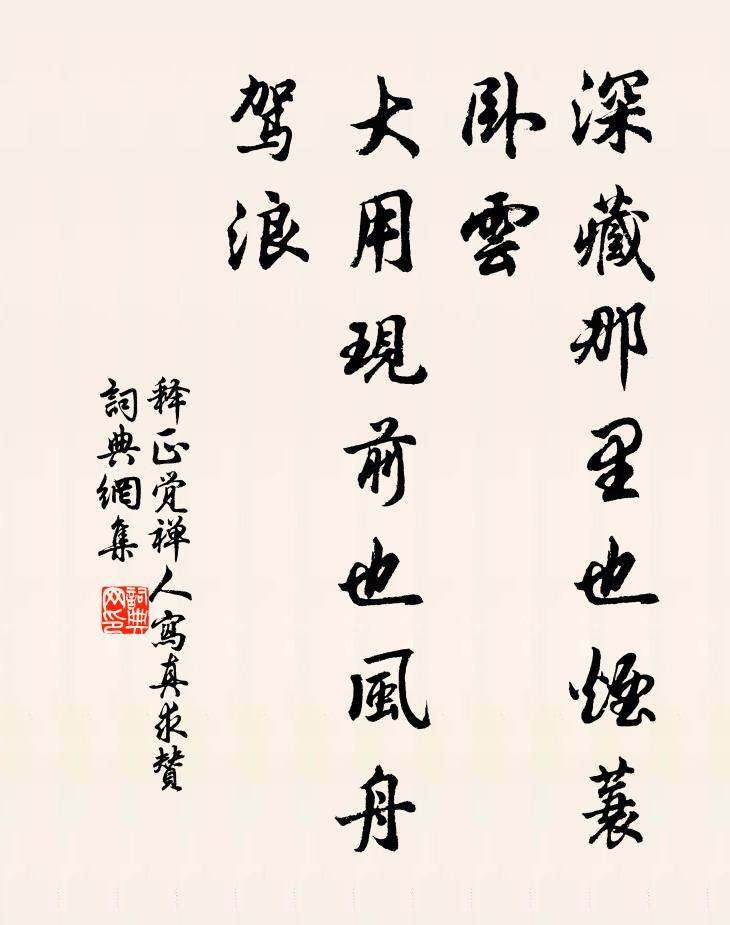 深藏那里也煙蓑
卧雲
大用現前也風舟
驾浪
释正觉禅人寫真求贊
詞典網集
詞典网印